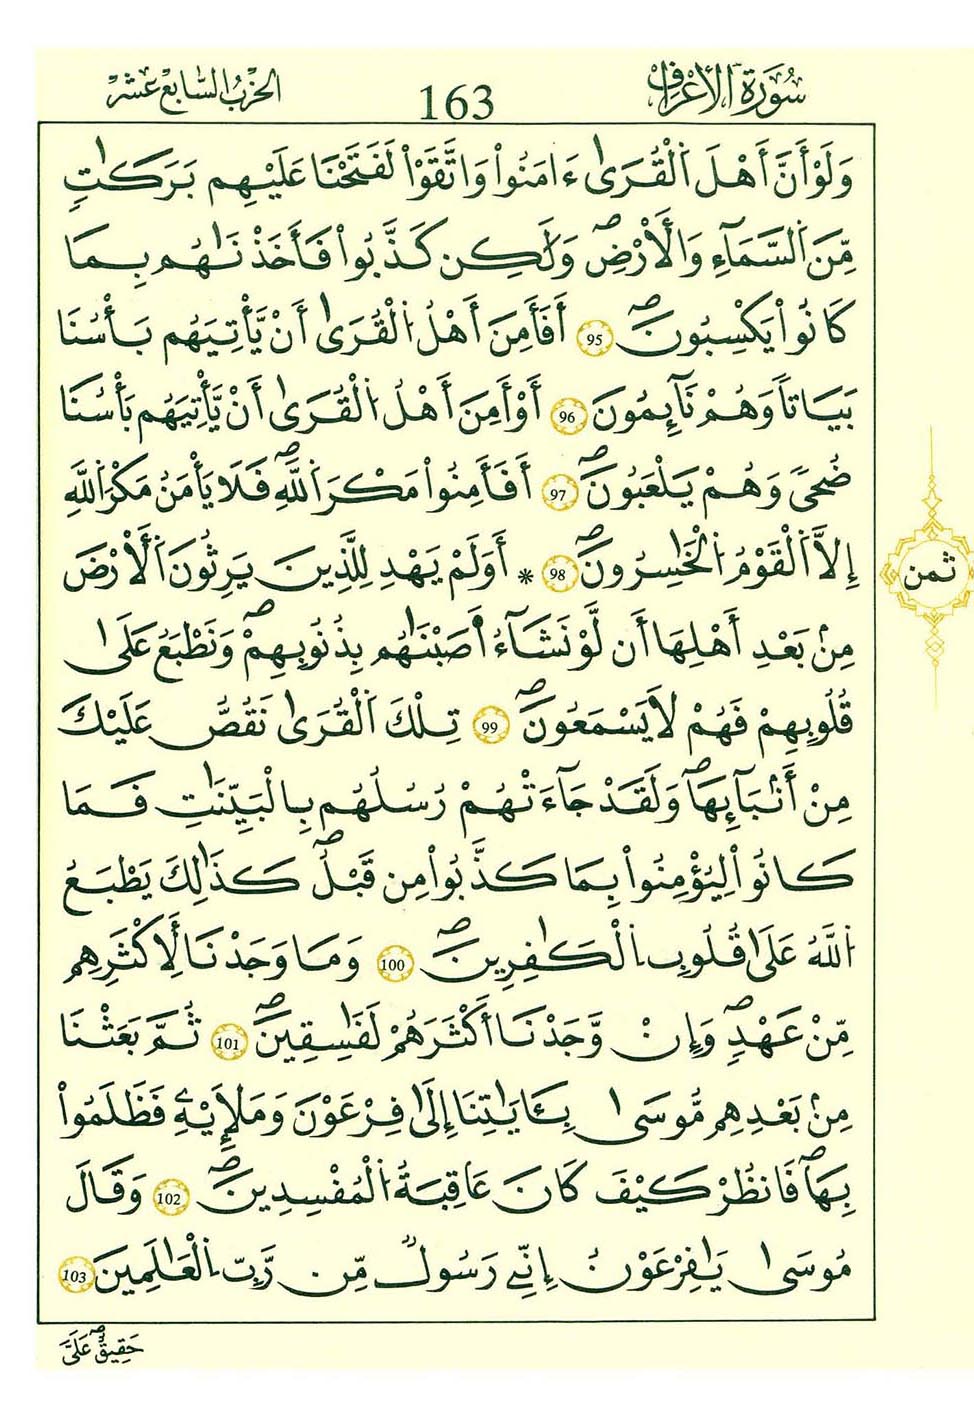 سُورَةُ الْأَعْرَافِ
163
الحِزْبُ السَّابِعَ عَشَرَ
وَلَوْ أَنَّ أَهْلَ اَلْقُرَىٰ ءَامَنُواْ وَاتَّقَوْاْ لَفَتَحْنَا عَلَيْهِم بَرَكَٰتٖ
مِّنَ اَلسَّمَآءِ وَالَارْضِۖ وَلَٰكِن كَذَّبُواْ فَأَخَذْنَٰهُم بِمَا
كَانُواْ يَكْسِبُونَۖ 95 أَفَأَمِنَ أَهْلُ اُلْقُرَىٰ أَنْ يَّأْتِيَهُم بَأْسُنَا
بَيَٰتاٗ وَهُمْ نَآئِمُونَ 96 أَوَ اَمِنَ أَهْلُ اُلْقُرَىٰ أَنْ يَّأْتِيَهُم بَأْسُنَا
ضُحىٗ وَهُمْ يَلْعَبُونَۖ 97 أَفَأَمِنُواْ مَكْرَ اَللَّهِۖ فَلَا يَأْمَنُ مَكْرَ اَللَّهِ
إِلَّا اَلْقَوْمُ اُلْخَٰسِرُونَۖ 98 * أَوَلَمْ يَهْدِ لِلَّذِينَ يَرِثُونَ اَلَارْضَ
مِنۢ بَعْدِ أَهْلِهَا أَن لَّوْ نَشَآءُ اَ۬صَبْنَٰهُم بِذُنُوبِهِمْۖ وَنَطْبَعُ عَلَىٰ
قُلُوبِهِمْ فَهُمْ لَا يَسْمَعُونَۖ 99 تِلْكَ اَلْقُرَىٰ نَقُصُّ عَلَيْكَ
مِنَ اَنۢبَآئِهَاۖ وَلَقَدْ جَآءَتْهُمْ رُسُلُهُم بِالْبَيِّنَٰتِ فَمَا
كَانُواْ لِيُؤْمِنُواْ بِمَا كَذَّبُواْ مِن قَبْلُۖ كَذَٰلِكَ يَطْبَعُ
اُللَّهُ عَلَىٰ قُلُوبِ اِلْكَٰفِرِينَۖ 100 وَمَا وَجَدْنَا لِأَكْثَرِهِم
مِّنْ عَهْدٖۖ وَإِنْ وَّجَدْنَا أَكْثَرَهُمْ لَفَٰسِقِينَۖ 101 ثُمَّ بَعَثْنَا
مِنۢ بَعْدِهِم مُّوسَىٰ بِـَٔايَٰتِنَا إِلَىٰ فِرْعَوْنَ وَمَلَإِيْهِۦ فَظَلَمُواْ
بِهَاۖ فَانظُرْ كَيْفَ كَانَ عَٰقِبَةُ اُلْمُفْسِدِينَۖ 102 وَقَالَ
مُوسَىٰ يَٰفِرْعَوْنُ إِنِّے رَسُولٞ مِّن رَّبِّ اِلْعَٰلَمِينَ 103
حَقِيقٌۖ عَلَيَّ
ثمن